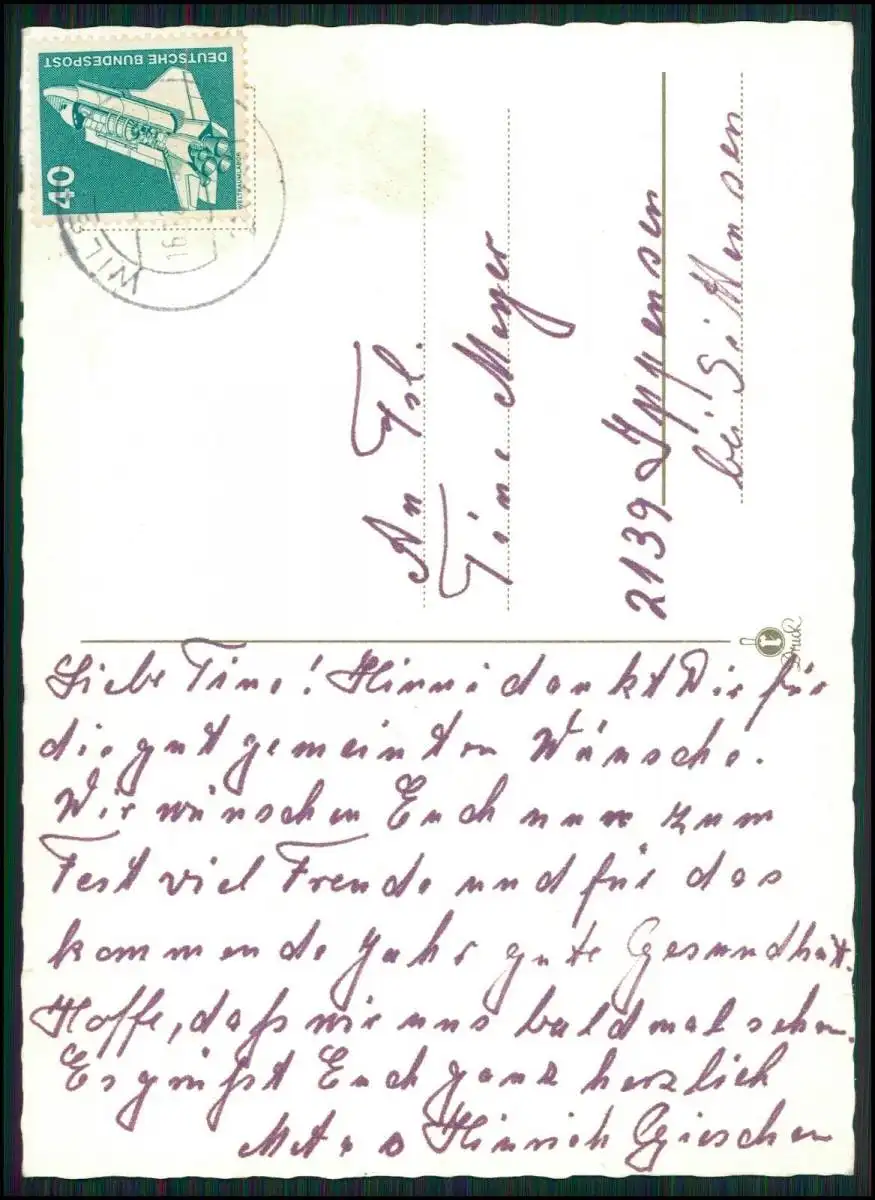 DEUTSCHE BUNDESPOST
40
WELTRAUMLABOR
16
An Frl.
Tine Meyer
2139 Ippensen
bei Sittensen
Druck
Liebe Tine! Hinni dankt Dir für
die gut gemeinten Wünsche.
Wir wünschen Euch nun zum
Fest viel Freude und für das
kommende Jahr gute Gesundheit.
Hoffe, daß wir uns bald mal sehen.
Es grüßt Euch ganz herzlich
Meta u Hinrich Gieschen